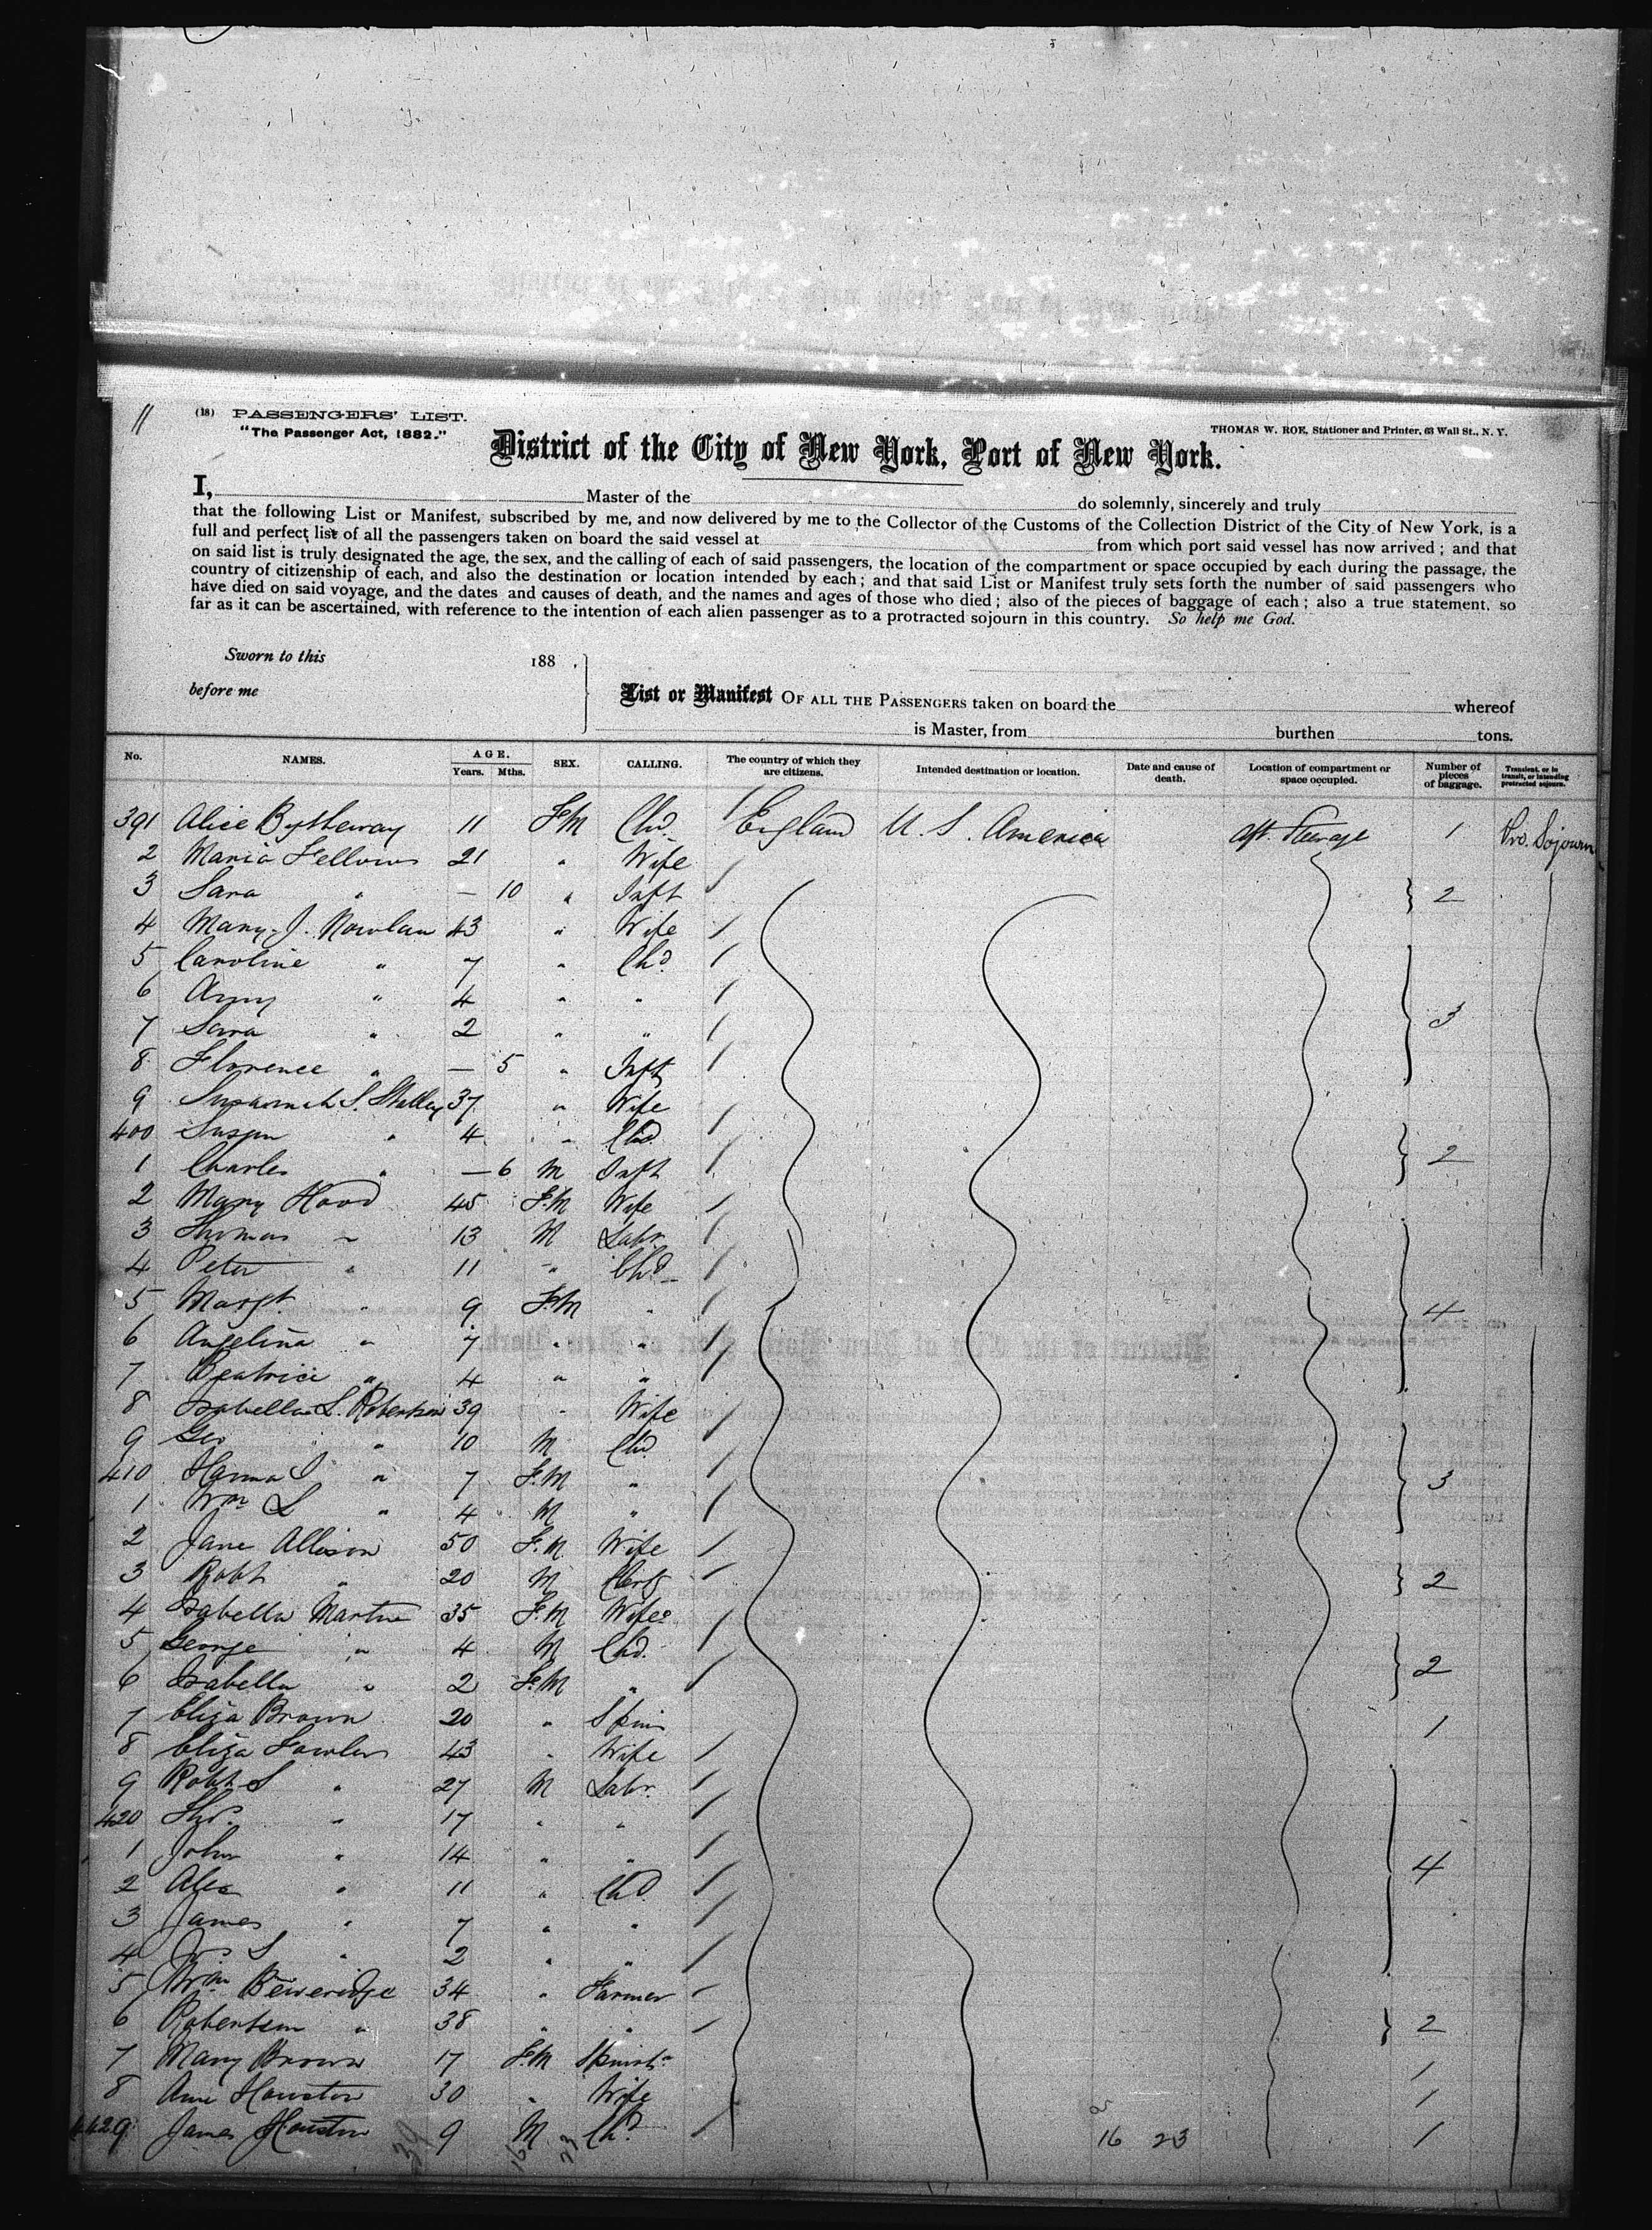 11
(18) PASSENGERS' LIST.
"The Passenger Act, 1882."
THOMAS W. ROE, Stationer and Printer, 63 Wall St., N. Y.
District of the City of New York, Port of New York.
I, Master of the do solemnly, sincerely and truly
that the following List or Manifest, subscribed by me, and now delivered by me to the Collector of the Customs of the Collection District of the City of New York, is a
full and perfect list of all the passengers taken on board the said vessel at from which port said vessel has now arrived; and that
on said list is truly designated the age, the sex, and the calling of each of said passengers, the location of the compartment or space occupied by each during the passage, the
country of citizenship of each, and also the destination or location intended by each; and that said List or Manifest truly sets forth the number of said passengers who
have died on said voyage, and the dates and causes of death, and the names and ages of those who died; also of the pieces of baggage of each; also a true statement, so
far as it can be ascertained, with reference to the intention of each alien passenger as to a protracted sojourn in this country. So help me God.
Sworn to this 188 .
before me
List or Manifest OF ALL THE PASSENGERS taken on board the whereof
is Master, from burthen tons.
No. NAMES. AGE. Years. Mths. SEX. CALLING. The country of which they are citizens. Intended destination or location. Date and cause of death. Location of compartment or space occupied. Number of pieces of baggage. Transient, or in transit, or intending protracted sojourn.
391 Alice Bytheway 11 F.M Chd. England U. S. America Aft. Steerage 1 Pro. Sojourn
2 Maria Fellows 21 " Wife
3 Sara " — 10 " Inft 2
4 Mary J. Nowlan 43 " Wife
5 Caroline " 7 " Chd.
6 Amy " 4 " "
7 Sara " 2 " " 3
8 Florence " — 5 " Inft
9 Susannah S. 37 " Wife
400 Susan " 4 " Chd.
1 Charles " — 6 M Inft 2
2 Mary Hood 45 F.M Wife
3 Thomas " 13 M Labr.
4 Peter " 11 " Chd.
5 Margt. " 9 F.M " 4
6 Angelina " 7 " "
7 Beatrice " 4 " "
8 Isabella L. Robertson 39 " Wife
9 Geo " 10 M Chd.
410 Hanna J " 7 F.M " 3
1 Wm L " 4 M "
2 Jane Allison 50 F.M. Wife
3 Robt " 20 M Clerk 2
4 Isabella Martin 35 F.M Wife
5 George " 4 M Chd.
6 Isabella " 2 F.M " 2
7 Eliza Brown 20 " Spin 1
8 Eliza Fowler 43 " Wife
9 Robt S " 27 M Labr.
420 " 17 " "
1 John " 14 " " 4
2 Alex " 11 " Chd.
3 James " 7 " "
4 S " 2 " "
5 Wm Beweridge 34 " Farmer
6 Robertson " 38 " " 2
7 Mary Brown 17 F.M Spinst. 1
8 Ann Houston 30 " Wife 1
429 James Houston 9 M Chd. 16 23 1
39 16 23